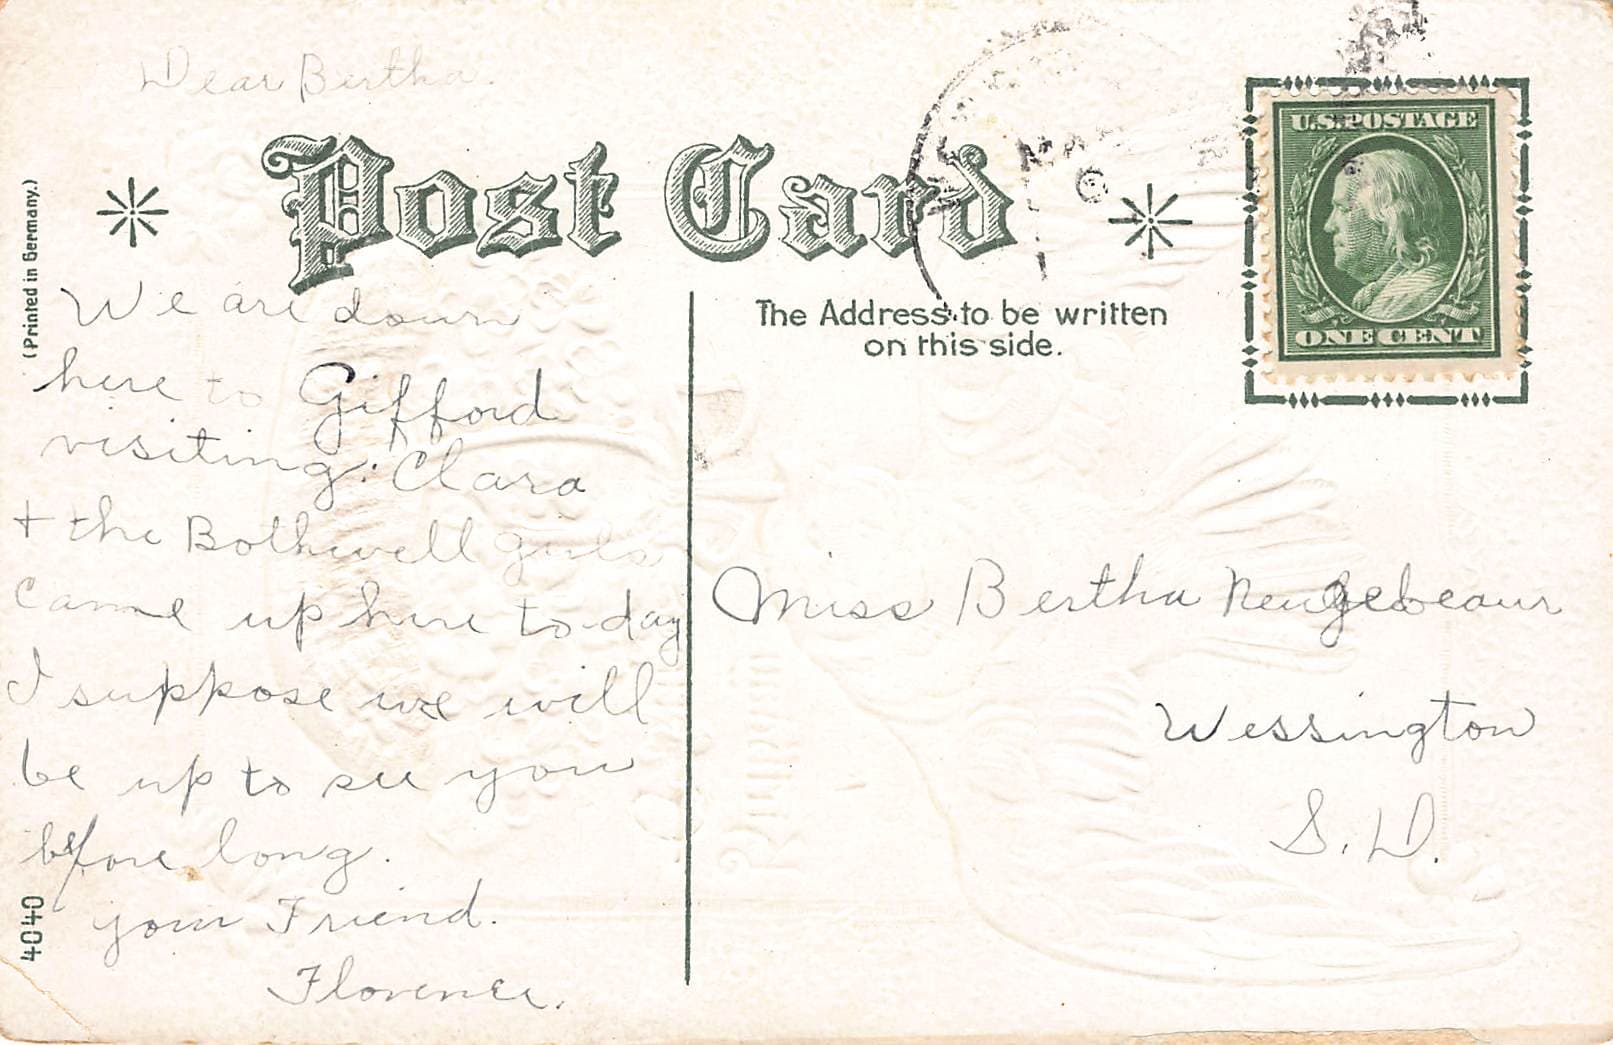 Dear Bertha.
Post Card
(Printed in Germany.)
MA
6
U.S. POSTAGE
ONE CENT
The Address to be written
on this side.
We are down
here to Gifford
visiting. Clara
+ the Bothwell girls
came up here to-day
I suppose we will
be up to see you
before long.
your Friend.
Florence.
4040
Miss Bertha Neugebeaur
Wessington
S. D.